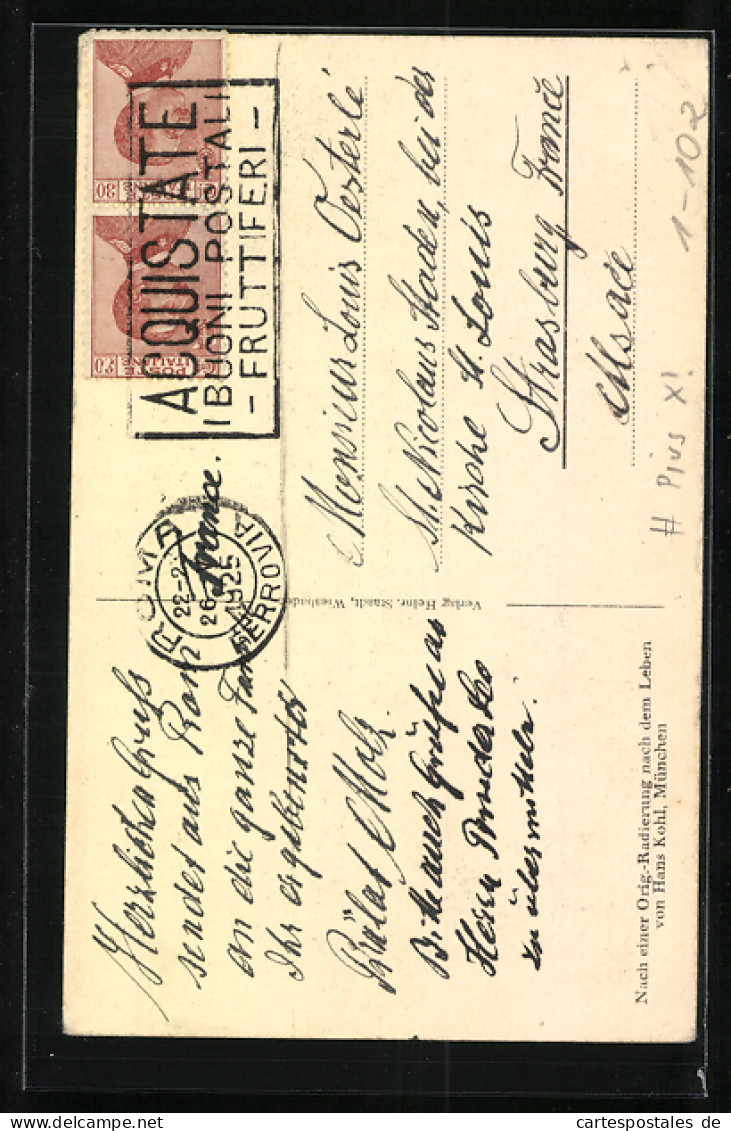 Herzlichen Gruß
sendet aus Rom
an die ganze Familie
Ihr ergebenster
Prälat Molz
Bitte auch Grüße an
Herrn
zu übermitteln.
Nach einer Orig.-Radierung nach dem Leben
von Hans Kohl, München
Verlag Heinr. Staadt, Wiesbaden
ROMA
22-2
26
1925
FERROVIA
France.
ACQUISTATE
I BUONI POSTALI
- FRUTTIFERI -
POSTE
ITALIANE
Monsieur Louis Oesterlé
St. Nicolaus Staden, bei der
Kirche St. Louis
Strasburg France
Alsace
# Pius XI
1-102
cartespostales de delcampe.net